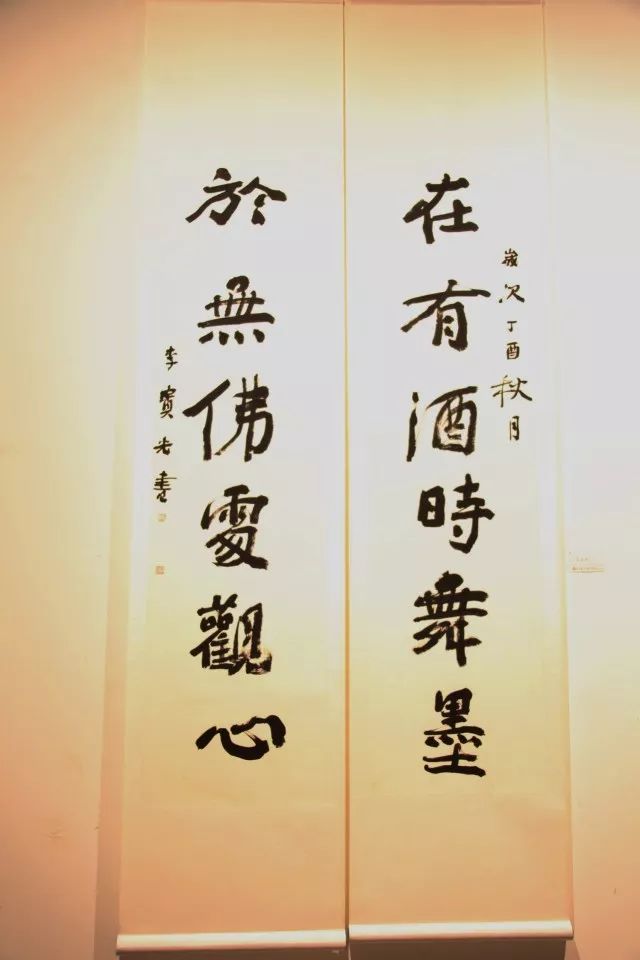 歲次丁酉秋月
在有酒時舞墨
於無佛處觀心
李寶光書